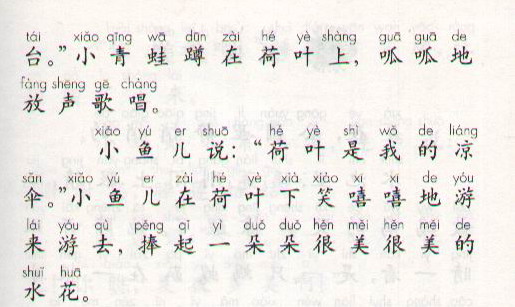 tái xiǎo qīng wā dūn zài hé yè shàng guā guā de
台。”小青蛙蹲在荷叶上，呱呱地
fàng shēng gē chàng
放声歌唱。
xiǎo yú er shuō hé yè shì wǒ de liáng
小鱼儿说：“荷叶是我的凉
sǎn xiǎo yú er zài hé yè xià xiào xī xī de yóu
伞。”小鱼儿在荷叶下笑嘻嘻地游
lái yóu qù pěng qǐ yì duǒ duǒ hěn měi hěn měi de
来游去，捧起一朵朵很美很美的
shuǐ huā
水花。